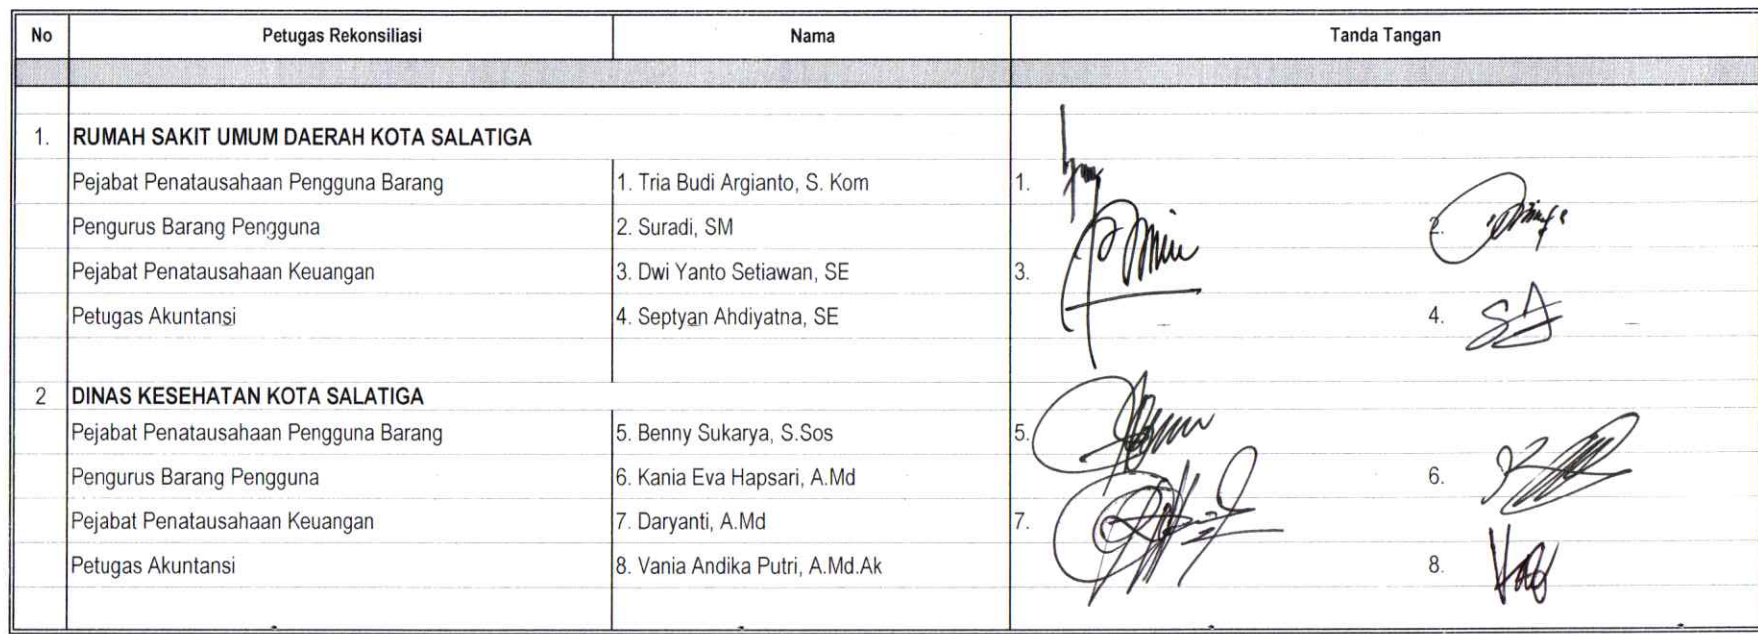 No Petugas Rekonsiliasi Nama Tanda Tangan
1. RUMAH SAKIT UMUM DAERAH KOTA SALATIGA
Pejabat Penatausahaan Pengguna Barang 1. Tria Budi Argianto, S. Kom 1.
Pengurus Barang Pengguna 2. Suradi, SM 2.
Pejabat Penatausahaan Keuangan 3. Dwi Yanto Setiawan, SE 3.
Petugas Akuntansi 4. Septyan Ahdiyatna, SE 4. SA
2 DINAS KESEHATAN KOTA SALATIGA
Pejabat Penatausahaan Pengguna Barang 5. Benny Sukarya, S.Sos 5.
Pengurus Barang Pengguna 6. Kania Eva Hapsari, A.Md 6.
Pejabat Penatausahaan Keuangan 7. Daryanti, A.Md 7.
Petugas Akuntansi 8. Vania Andika Putri, A.Md.Ak 8.